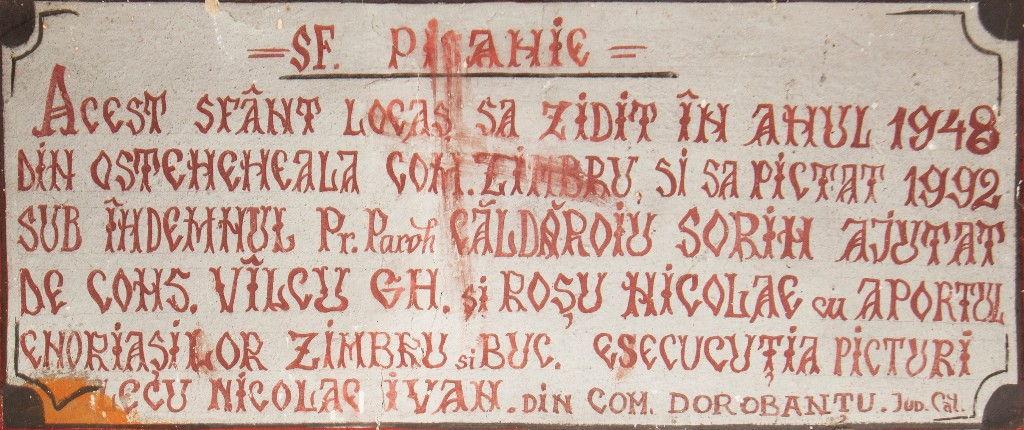 =SF. PISANIE=
ACEST SFÂNT LOCAȘ SA ZIDIT ÎN ANUL 1948
DIN OSTENENEALA COM. ZIMBRU, SI SA PICTAT 1992
SUB ÎNDEMNUL Pr. Paroh CĂLDĂROIU SORIN AJUTAT
DE CONS. VÎLCU GH. și ROȘU NICOLAE cu APORTUL
ENORIAȘILOR ZIMBRU si BUC. ESECUCUȚIA PICTURI
NICOLAE IVAN. DIN COM. DOROBANTU. JUD. Căl.